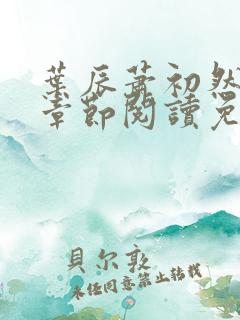 葉辰蕭初然
章節閱讀免
貝尔敦
未经同意禁止转载